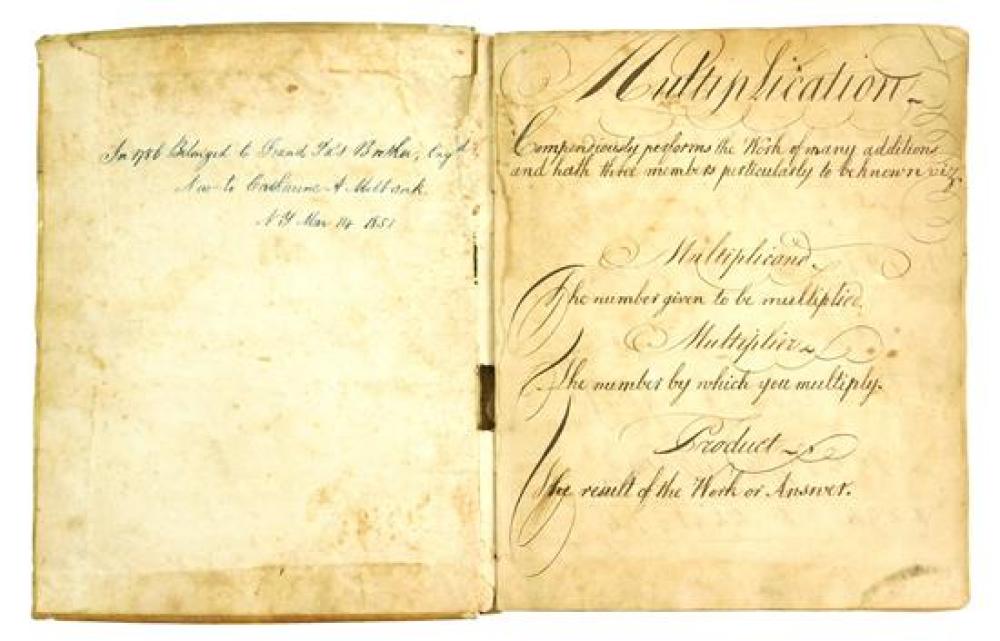 In 1786 Belonged to
Now to Catharine A Milbank
N Y Mar 14 1851
Multiplication
Compendiously performs the Work of many additions
and hath three members perticularly to be known viz.
Multiplicand
The number given to be multiplied.
Multiplier
The number by which you multiply.
Product
The result of the Work or Answer.